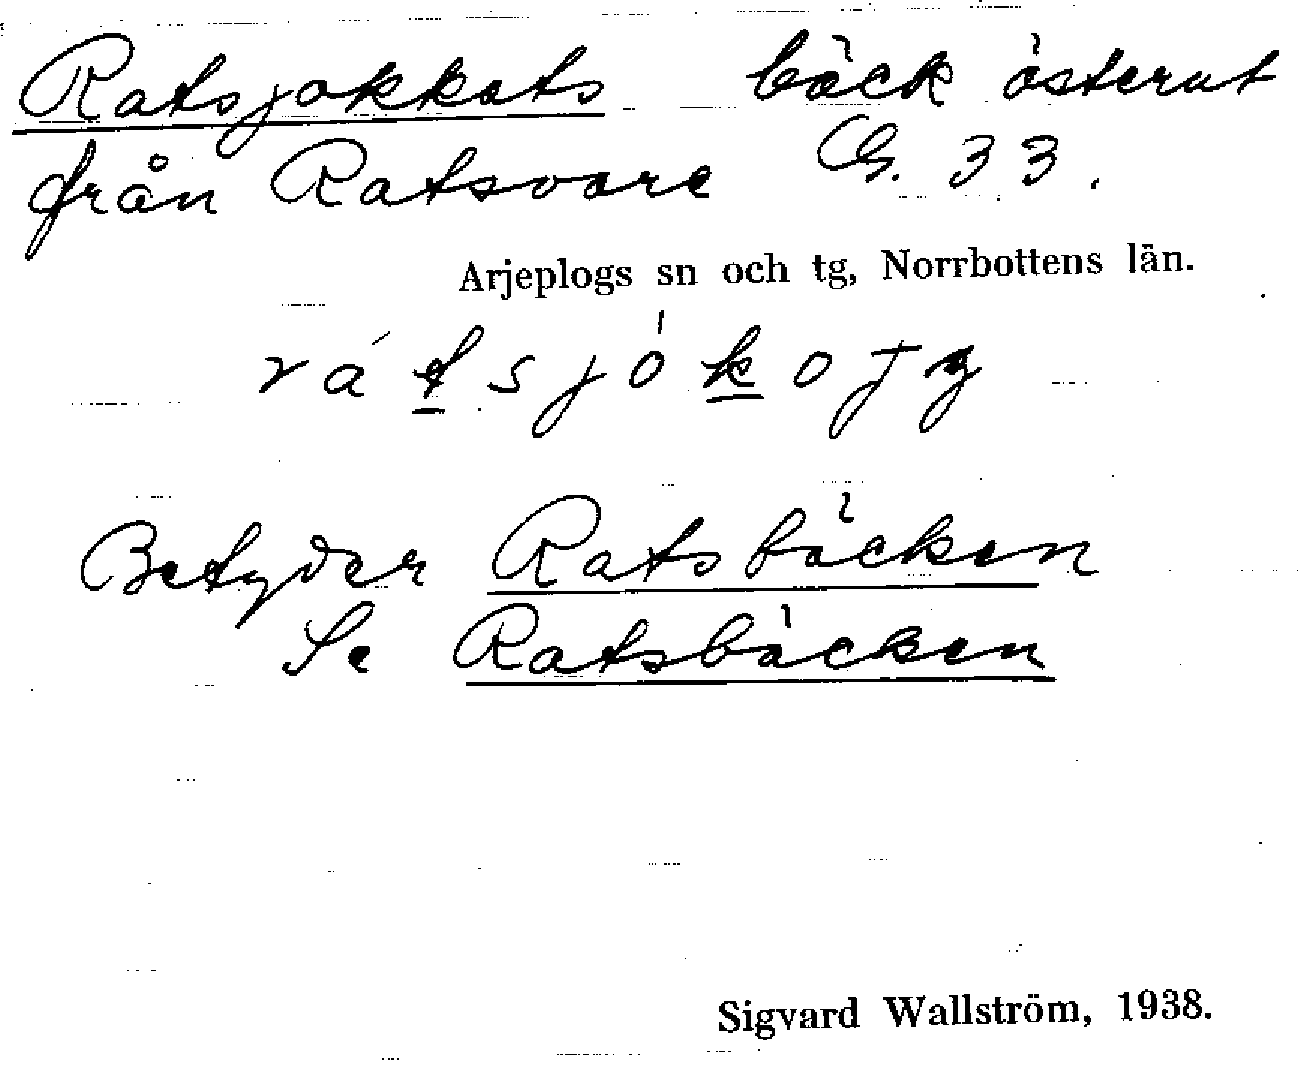 Ratsjokkats bäck österut
från Ratsvare G. 33.
Arjeplogs sn och tg, Norrbottens län.
Betyder Ratsbäcken
Se Ratsbäcken
Sigvard Wallström, 1938.